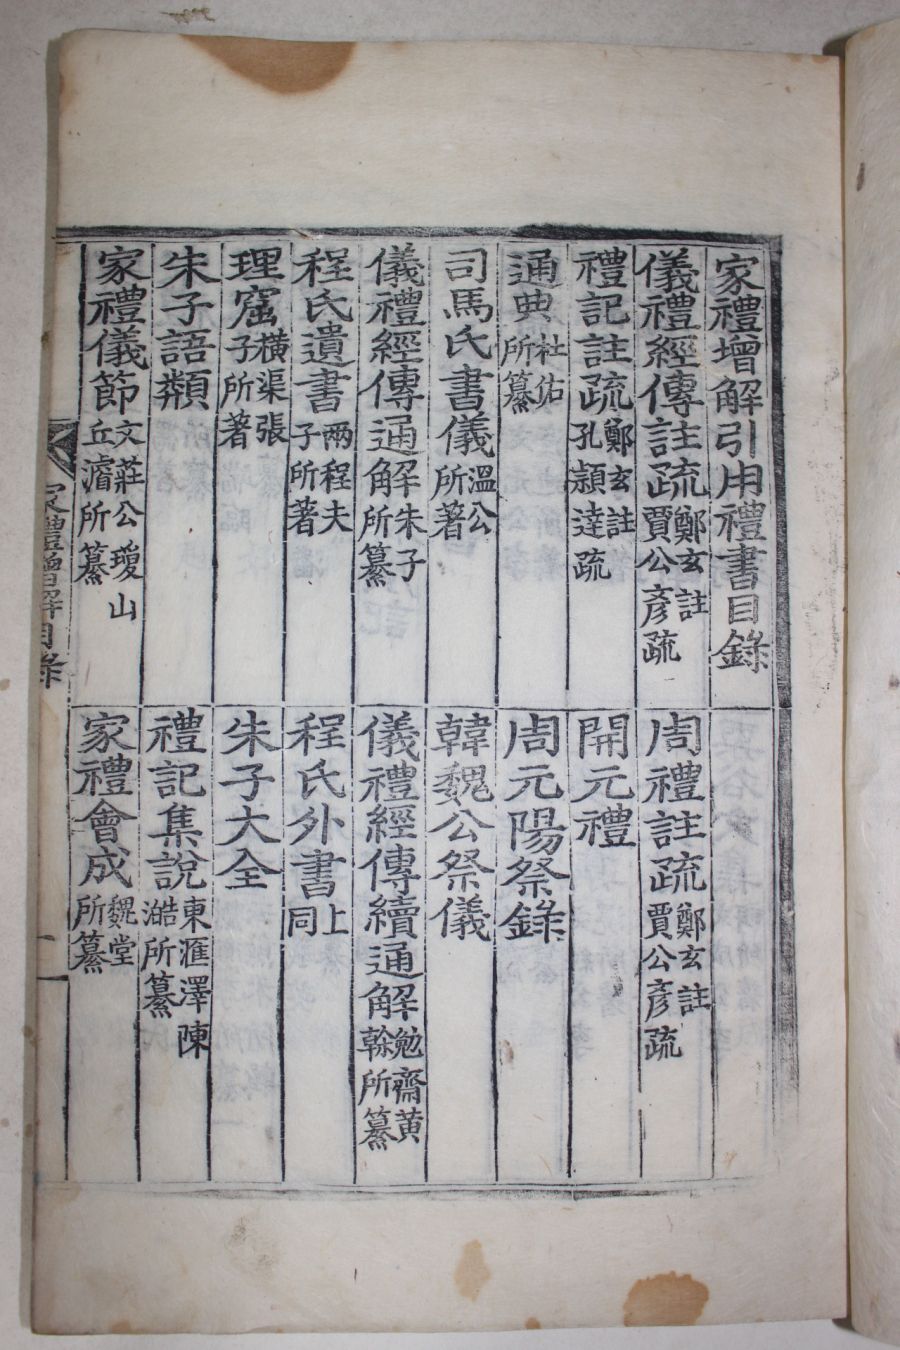 家禮增解引用禮書目錄
儀禮經傳註疏 鄭玄註 賈公彦疏
周禮註疏 鄭玄註 賈公彦疏
禮記註疏 鄭玄註 孔頴達疏
開元禮
通典 杜佑 所纂
周元陽祭錄
司馬氏書儀 溫公 所著
韓魏公祭儀
儀禮經傳通解 朱子 所纂
儀禮經傳續通解 勉齋黄 榦所纂
程氏遺書 兩程夫 子所著
程氏外書 上 同
理窟 橫渠張 子所著
朱子大全
朱子語類
禮記集說 東滙澤陳 澔所纂
家禮儀節 文莊公瓊山 丘濬所纂
家禮會成 魏堂 所纂
家禮增解目錄
一